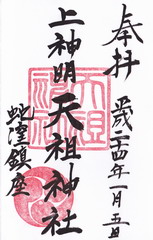 奉拝
平成二十四年一月五日
上神明天祖神社
蛇窪鎮座